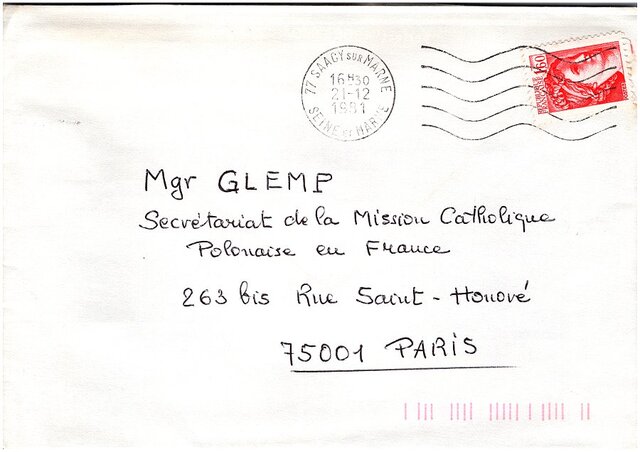 77 SAACY SUR MARNE
16H30
21-12
1981
SEINE ET MARNE
1,60
Mgr GLEMP
Secrétariat de la Mission Catholique
Polonaise en France
263 bis Rue Saint-Honoré
75001 PARIS